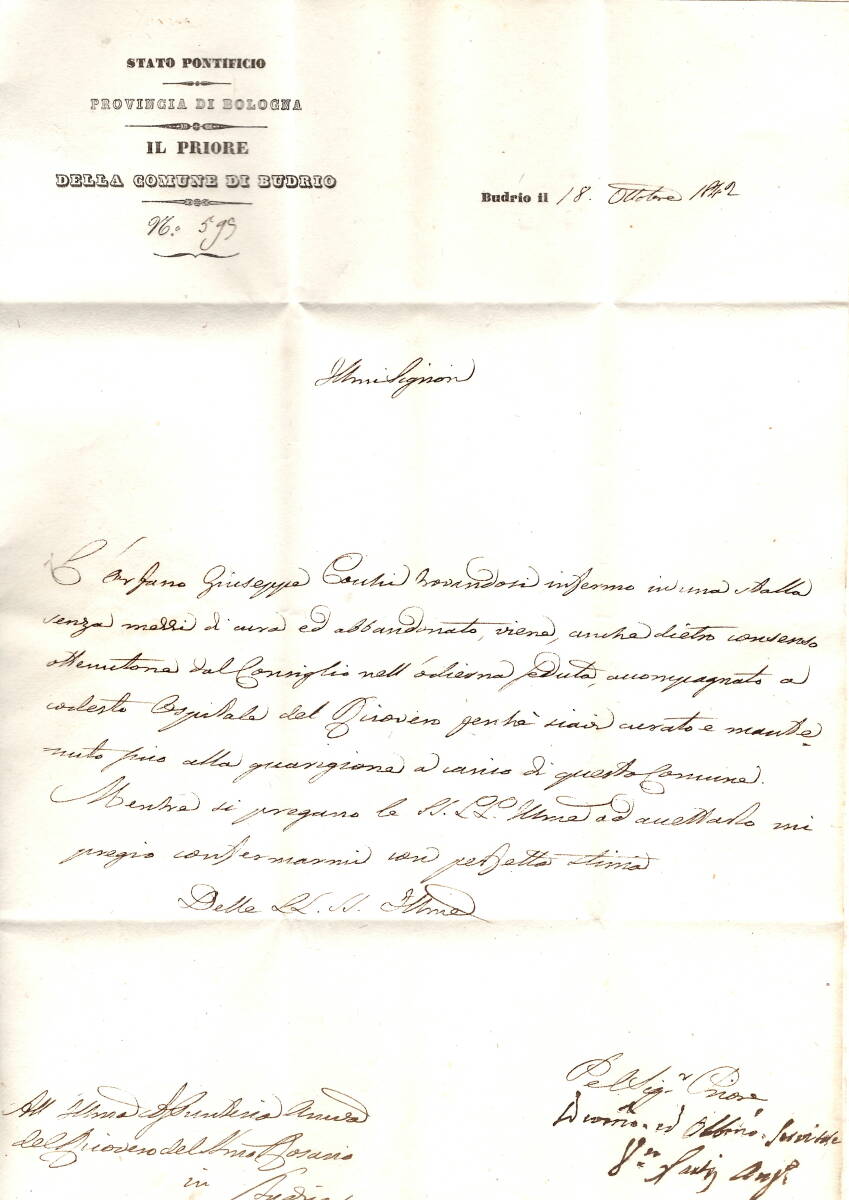 STATO PONTIFICIO
PROVINCIA DI BOLOGNA
IL PRIORE
DELLA COMUNE DI BUDRIO
N.° 599
Budrio il 18. Ottobre 1842
Illmi Signori
L'Orfano Giuseppe trovandosi infermo in una stalla
senza mezzi di cura ed abbandonato, viene, anche dietro consenso
ottenutone dal Consiglio nell'odierna seduta, accompagnato a
codesto Ospitale del Ricovero perchè siavi curato e mante=
nuto fino alla guarigione a carico di questo Comune.
Mentre si pregano le SS. LL. Illme ad accettarlo mi
pregio confermarmi con perfetta stima
Delle LL. SS. Illme
Pel Sig.r Priore
All'Illma
del Ricovero del Smo Rosario
in
Budrio